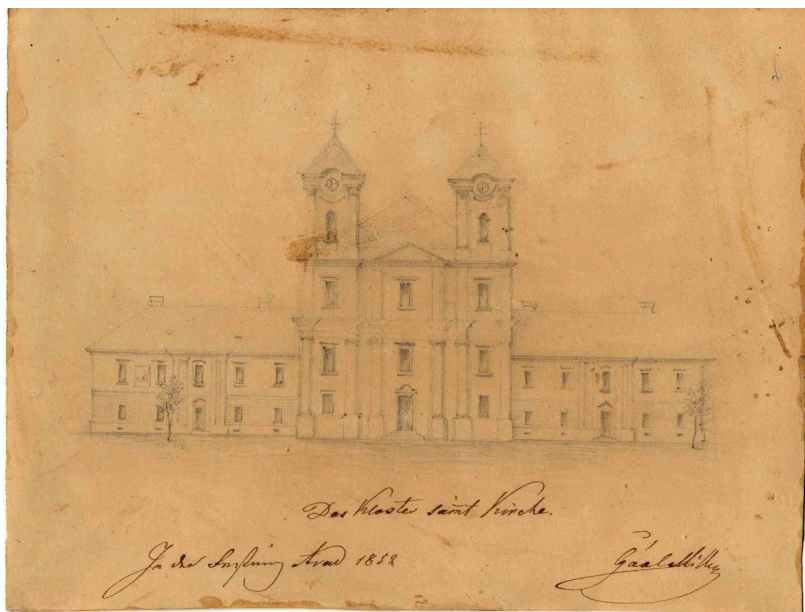 Das Kloster sam̄t Kirche.
In der Festung Arad 1852
Gáal Miklós